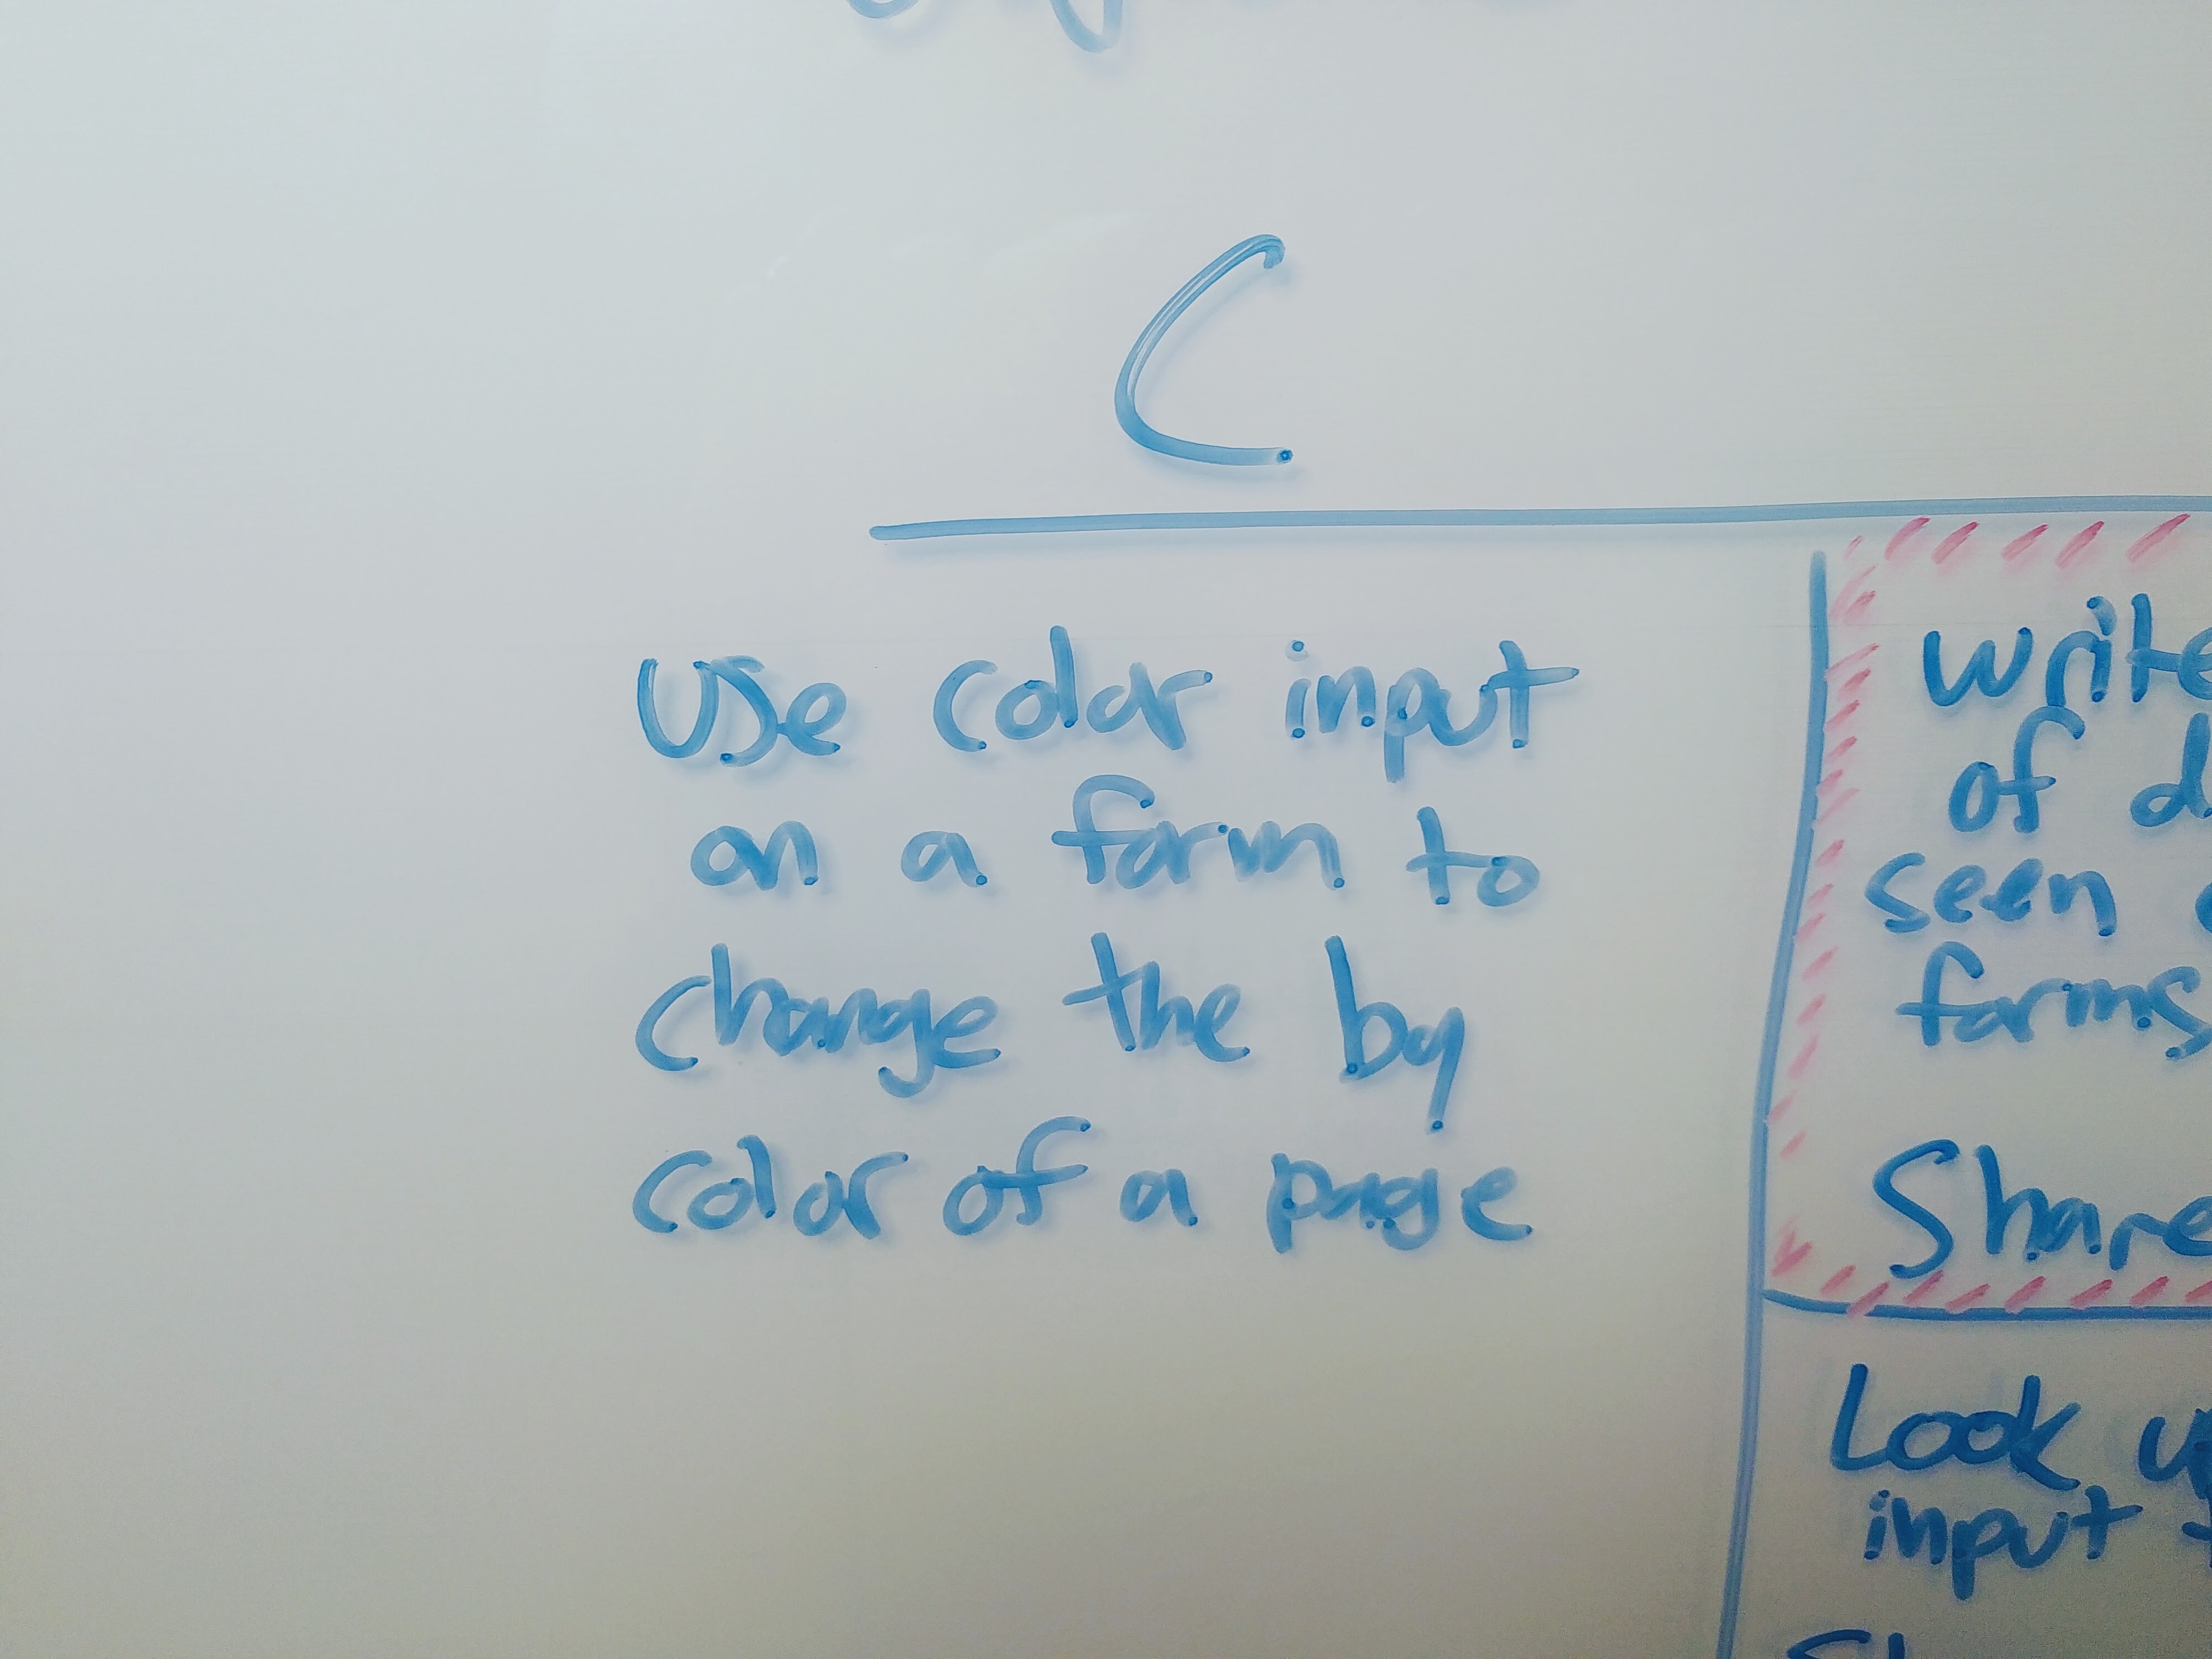 C
Use color input
on a form to
change the bg
color of a page
write
of
seen
forms
Share
Look
input